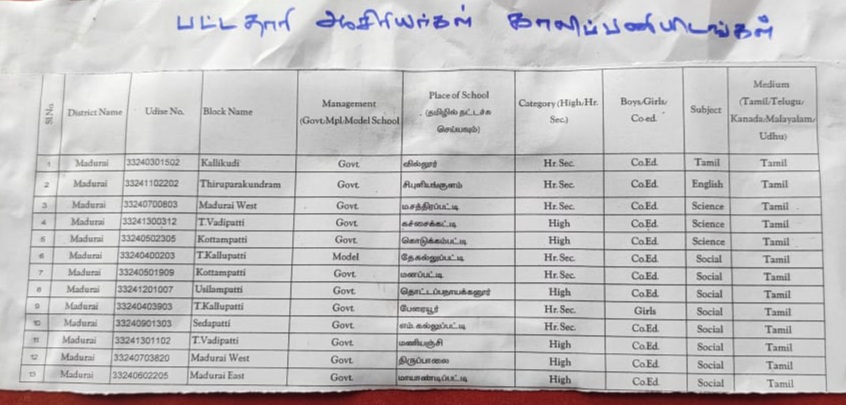 பட்டதாரி ஆசிரியர்கள் காலிப்பணியிடங்கள்
Sl.No. District Name Udise No. Block Name Management (Govt./Mpl./Model School) Place of School (தமிழில் தட்டச்சு செய்யவும்) Category (High/Hr. Sec.) Boys/Girls/ Co-ed. Subject Medium (Tamil/Telugu/ Kanada/Malayalam/ Udhu)
1 Madurai 33240301502 Kallikudi Govt. வில்லூர் Hr. Sec. Co.Ed. Tamil Tamil
2 Madurai 33241102202 Thiruparakundram Govt. Hr. Sec. Co.Ed. English Tamil
3 Madurai 33240700803 Madurai West Govt. மசத்திரப்பட்டி Hr. Sec. Co.Ed. Science Tamil
4 Madurai 33241300312 T.Vadipatti Govt. கச்சைக்கட்டி High Co.Ed. Science Tamil
5 Madurai 33240502305 Kottampatti Govt. கொடுக்கம்பட்டி High Co.Ed. Science Tamil
6 Madurai 33240400203 T.Kallupatti Model தேகல்லுப்பட்டி Hr. Sec. Co.Ed. Social Tamil
7 Madurai 33240501909 Kottampatti Govt. மணப்பட்டி Hr. Sec. Co.Ed. Social Tamil
8 Madurai 33241201007 Usilampatti Govt. தொட்டப்பநாயக்கனூர் High Co.Ed. Social Tamil
9 Madurai 33240403903 T.Kallupatti Govt. பேரையூர் Hr. Sec. Girls Social Tamil
10 Madurai 33240901303 Sedapatti Govt. எம். கல்லுப்பட்டி Hr. Sec. Co.Ed. Social Tamil
11 Madurai 33241301102 T.Vadipatti Govt. மணியஞ்சி High Co.Ed. Social Tamil
12 Madurai 33240703820 Madurai West Govt. திருப்பாலை High Co.Ed. Social Tamil
13 Madurai 33240602205 Madurai East Govt. மாயாண்டிப்பட்டி High Co.Ed. Social Tamil